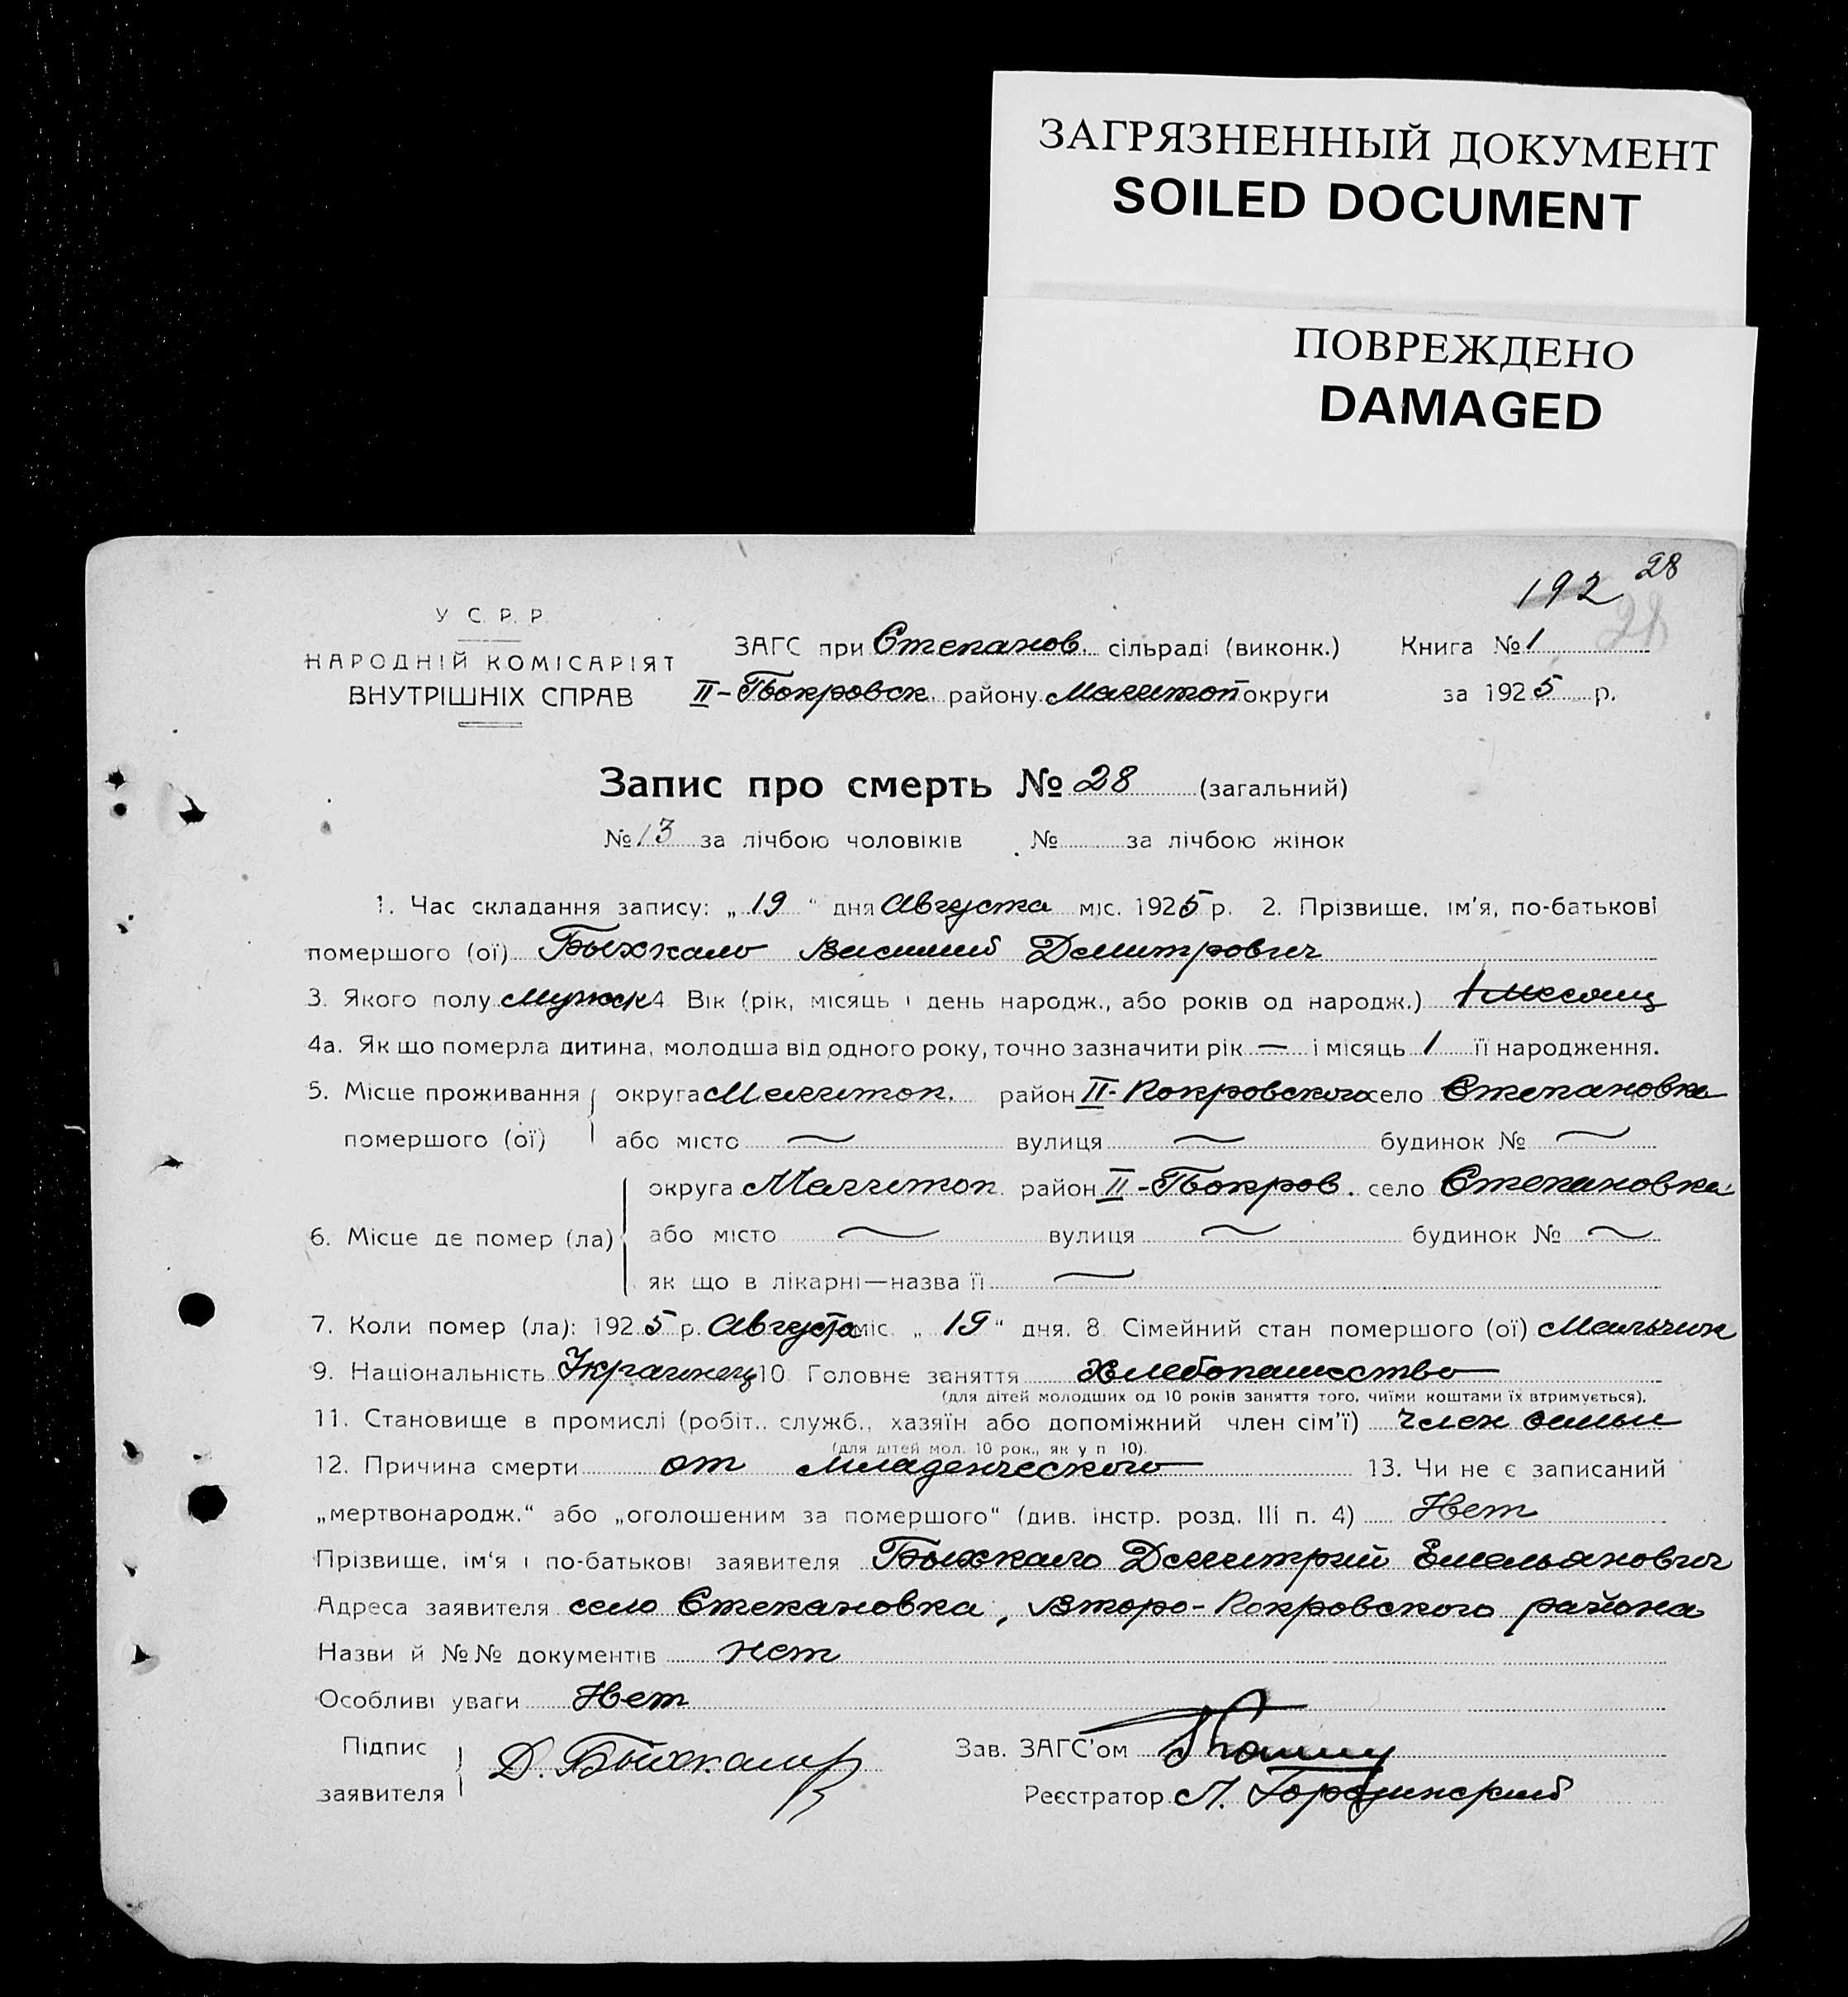 ЗАГРЯЗНЕННЫЙ ДОКУМЕНТ
SOILED DOCUMENT
ПОВРЕЖДЕНО
DAMAGED
192 28
28
У. С. Р. Р.
НАРОДНІЙ КОМІСАРІЯТ
ВНУТРІШНІХ СПРАВ
ЗАГС при Степанов. сільраді (виконк.) Книга № 1
II-Покровск. району Мелитоп округи за 1925 р.
Запис про смерть № 28 (загальний)
№ 13 за лічбою чоловіків № за лічбою жінок
1. Час складання запису: „ 19 “ дня Августа міс. 1925 р. 2. Прізвище, ім'я, по-батькові
помершого (ої) Быхкало Василий Дмитрович
3. Якого полу мужск 4 Вік (рік, місяць і день народж., або років од народж.) 1 месяц
4а. Як що померла дитина, молодша від одного року, точно зазначити рік — і місяць 1 її народження.
5. Місце проживання округа Мелитоп. район II-Покровского село Степановка
помершого (ої) або місто — вулиця — будинок № —
округа Мелитоп. район II-Покров. село Степановка
6. Місце де помер (ла) або місто — вулиця — будинок № —
як що в лікарні—назва її —
7. Коли помер (ла): 1925 р. Августа міс. „ 19 “ дня. 8. Сімейний стан помершого (ої) Мальчик
9. Національність Украинец 10 Головне заняття Хлебопашество
(для дітей молодших од 10 років заняття того, чиїми коштами їх втримується).
11. Становище в промислі (робіт., служб., хазяїн або допоміжний член сім'ї) член семьи
(для дітей мол. 10 рок., як у п 10).
12. Причина смерти от младенческого 13. Чи не є записаний
„мертвонародж.“ або „оголошеним за помершого“ (див. інстр. розд. III п. 4) Нет
Прізвище, ім‘я і по-батькові заявителя Быхкало Дмитрий Емельянович
Адреса заявителя село Степановка, Второ-Покровского района
Назви й №№ документів нет
Особливі уваги Нет
Підпис
заявителя Д. Быхкало
Зав. ЗАГС'ом
Реєстратор Городинский